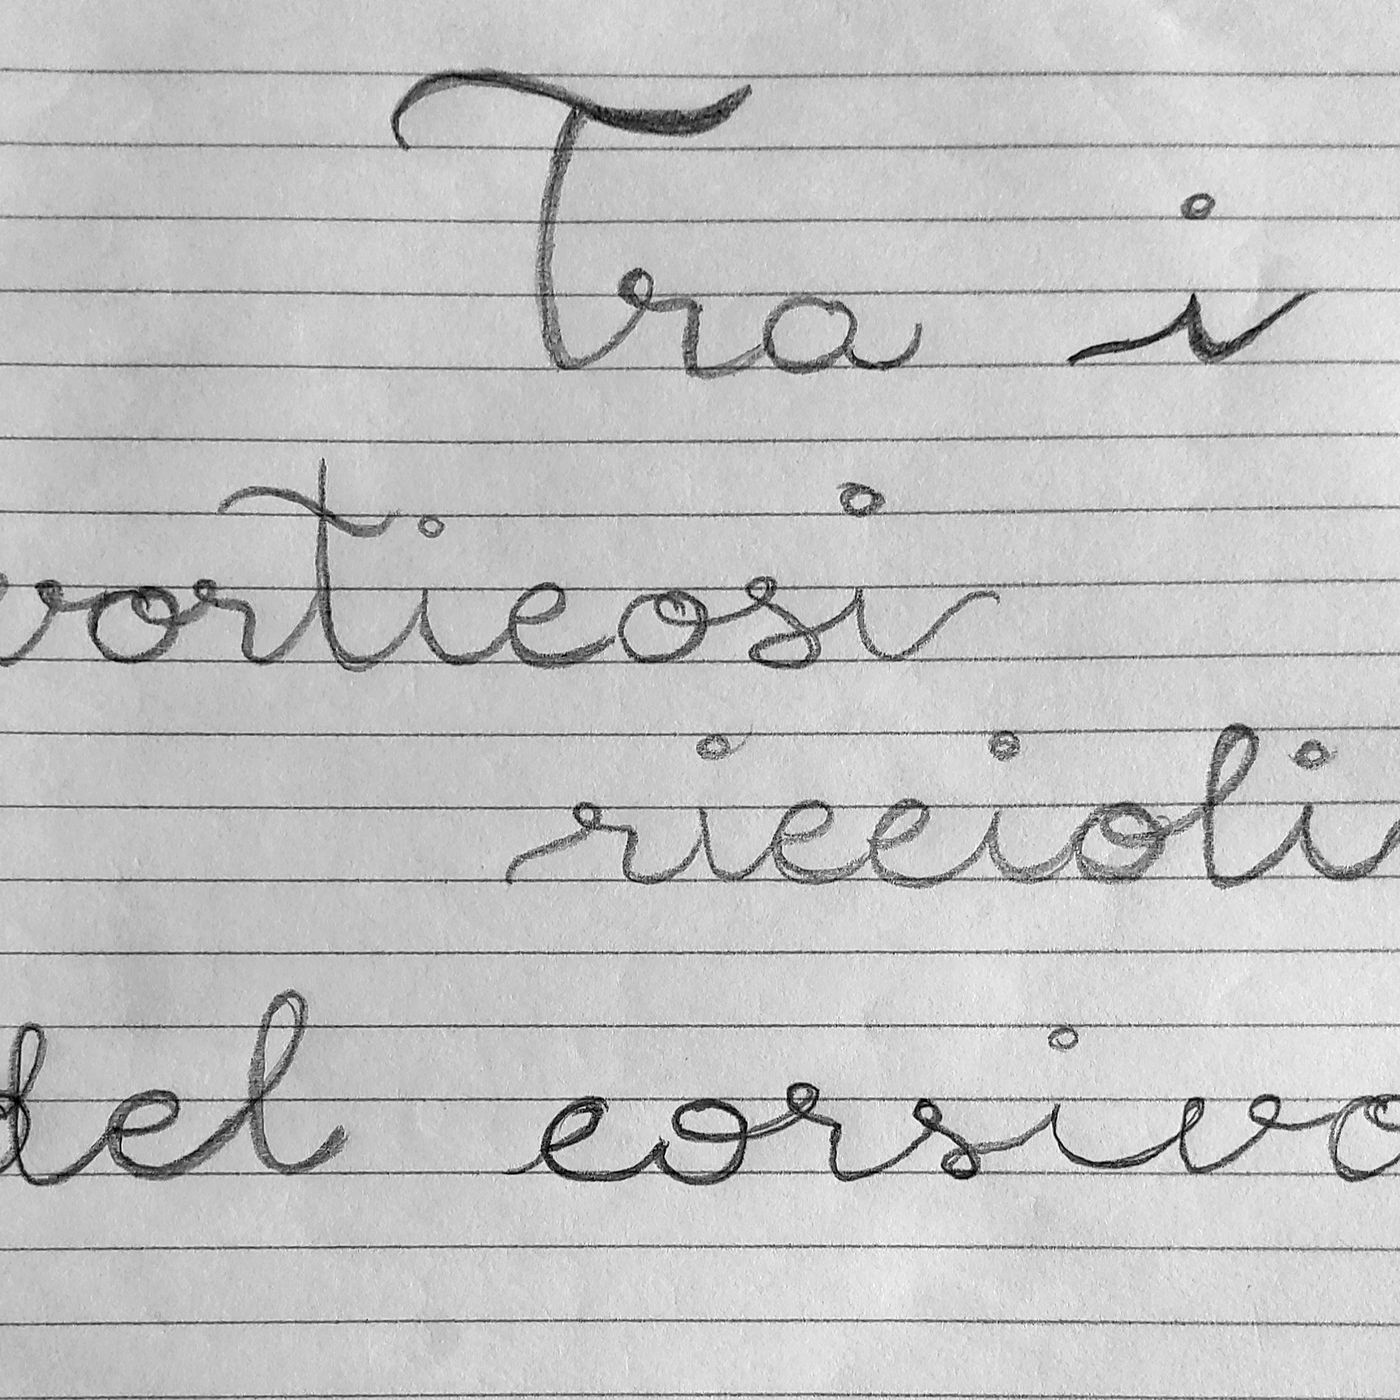 Tra i
vorticosi
riccioli
del corsivo